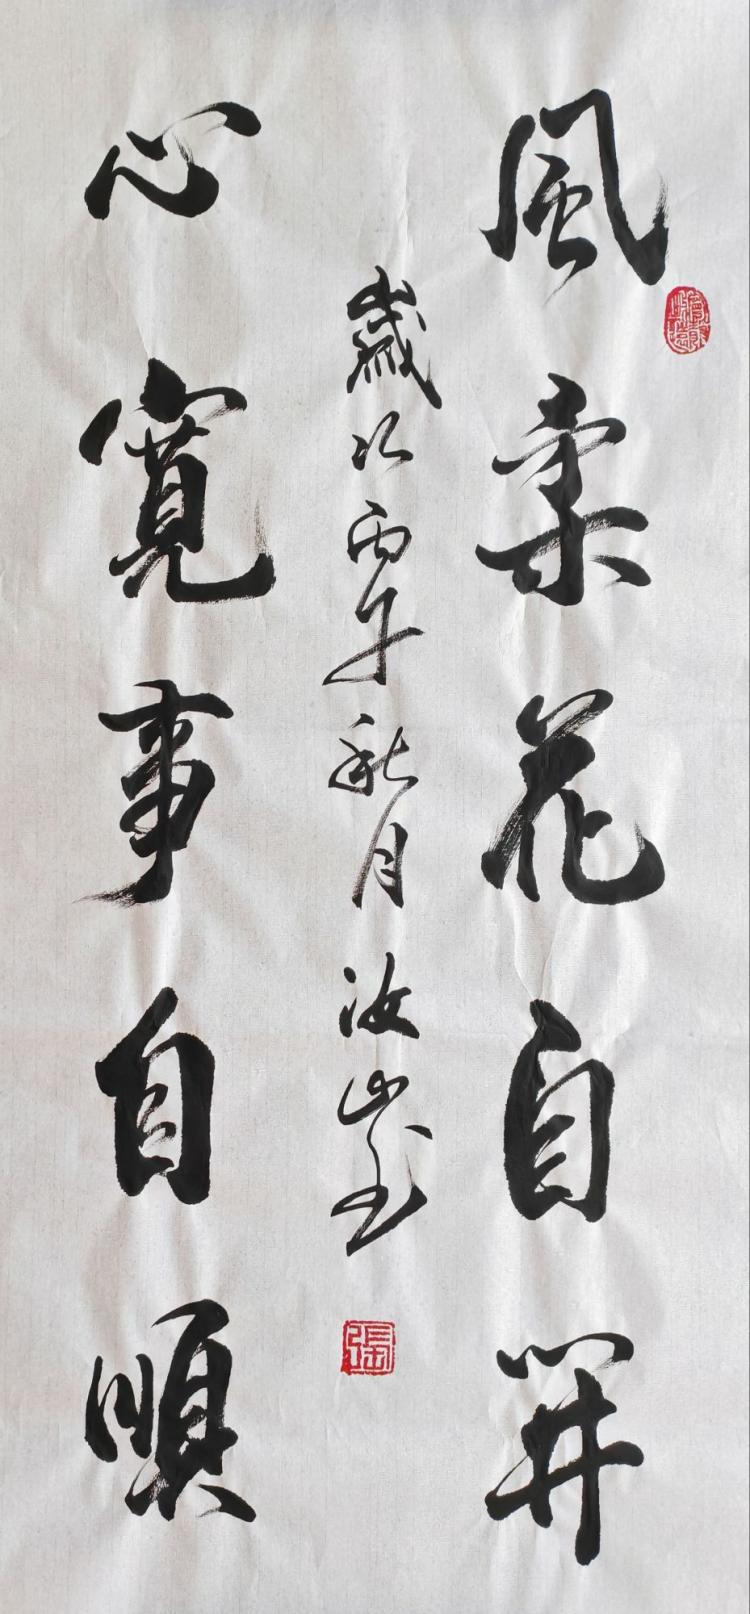 風柔花自開
心寬事自順
歲次丙午秋月汝山書
張